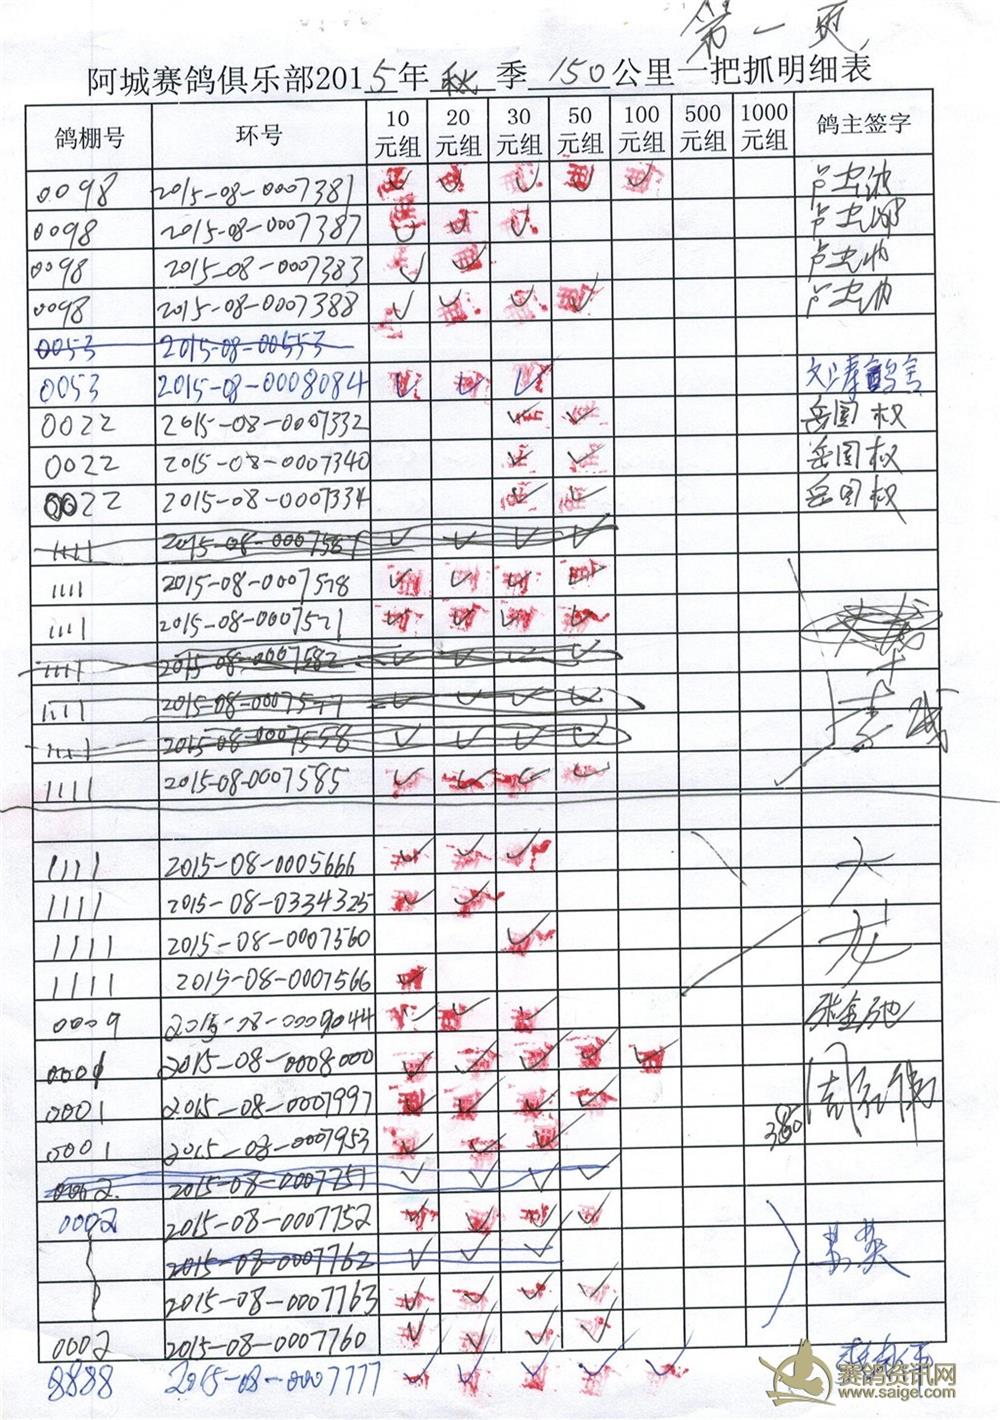 第一页
阿城赛鸽俱乐部2015年秋季150公里一把抓明细表
鸽棚号 环号 10元组 20元组 30元组 50元组 100元组 500元组 1000元组 鸽主签字
0098 2015-08-0007381 ✓ ✓ ✓ ✓ ✓
0098 2015-08-0007387 ✓ ✓ ✓
0098 2015-08-0007383 ✓ ✓
0098 2015-08-0007388 ✓ ✓ ✓ ✓
0053 2015-08-00553
0053 2015-08-0008084 ✓ ✓ ✓
0022 2015-08-0007332 ✓ ✓ 岳国权
0022 2015-08-0007340 ✓ ✓ 岳国权
0022 2015-08-0007334 ✓ ✓ 岳国权
1111 ✓ ✓ ✓ ✓
1111 2015-08-0007578 ✓ ✓ ✓ ✓
1111 2015-08-0007571 ✓ ✓ ✓ ✓
1111 2015-08-0007582 ✓ ✓ ✓ ✓
1111 2015-08-0007577 ✓ ✓ ✓ ✓
1111 2015-08-0007558 ✓ ✓ ✓ ✓
1111 2015-08-0007585 ✓ ✓ ✓ ✓
1111 2015-08-0005666 ✓ ✓ ✓
1111 2015-08-0334325 ✓ ✓
1111 2015-08-0007560 ✓
1111 2015-08-0007566 ✓
0009 2015-08-0009044 ✓ ✓ ✓
0001 2015-08-0008000 ✓ ✓ ✓ ✓ ✓
0001 2015-08-0007997 ✓ ✓ ✓ ✓
380
0001 2015-08-0007953 ✓ ✓ ✓
0002 2015-08-0007751 ✓ ✓ ✓ ✓
0002 2015-08-0007752 ✓ ✓ ✓ ✓
2015-08-0007762 ✓ ✓ ✓
2015-08-0007763 ✓ ✓ ✓ ✓
0002 2015-08-0007760 ✓ ✓ ✓ ✓
8888 2015-08-0007777 ✓ ✓ ✓ ✓ ✓
赛鸽资讯网
www.saigel.com